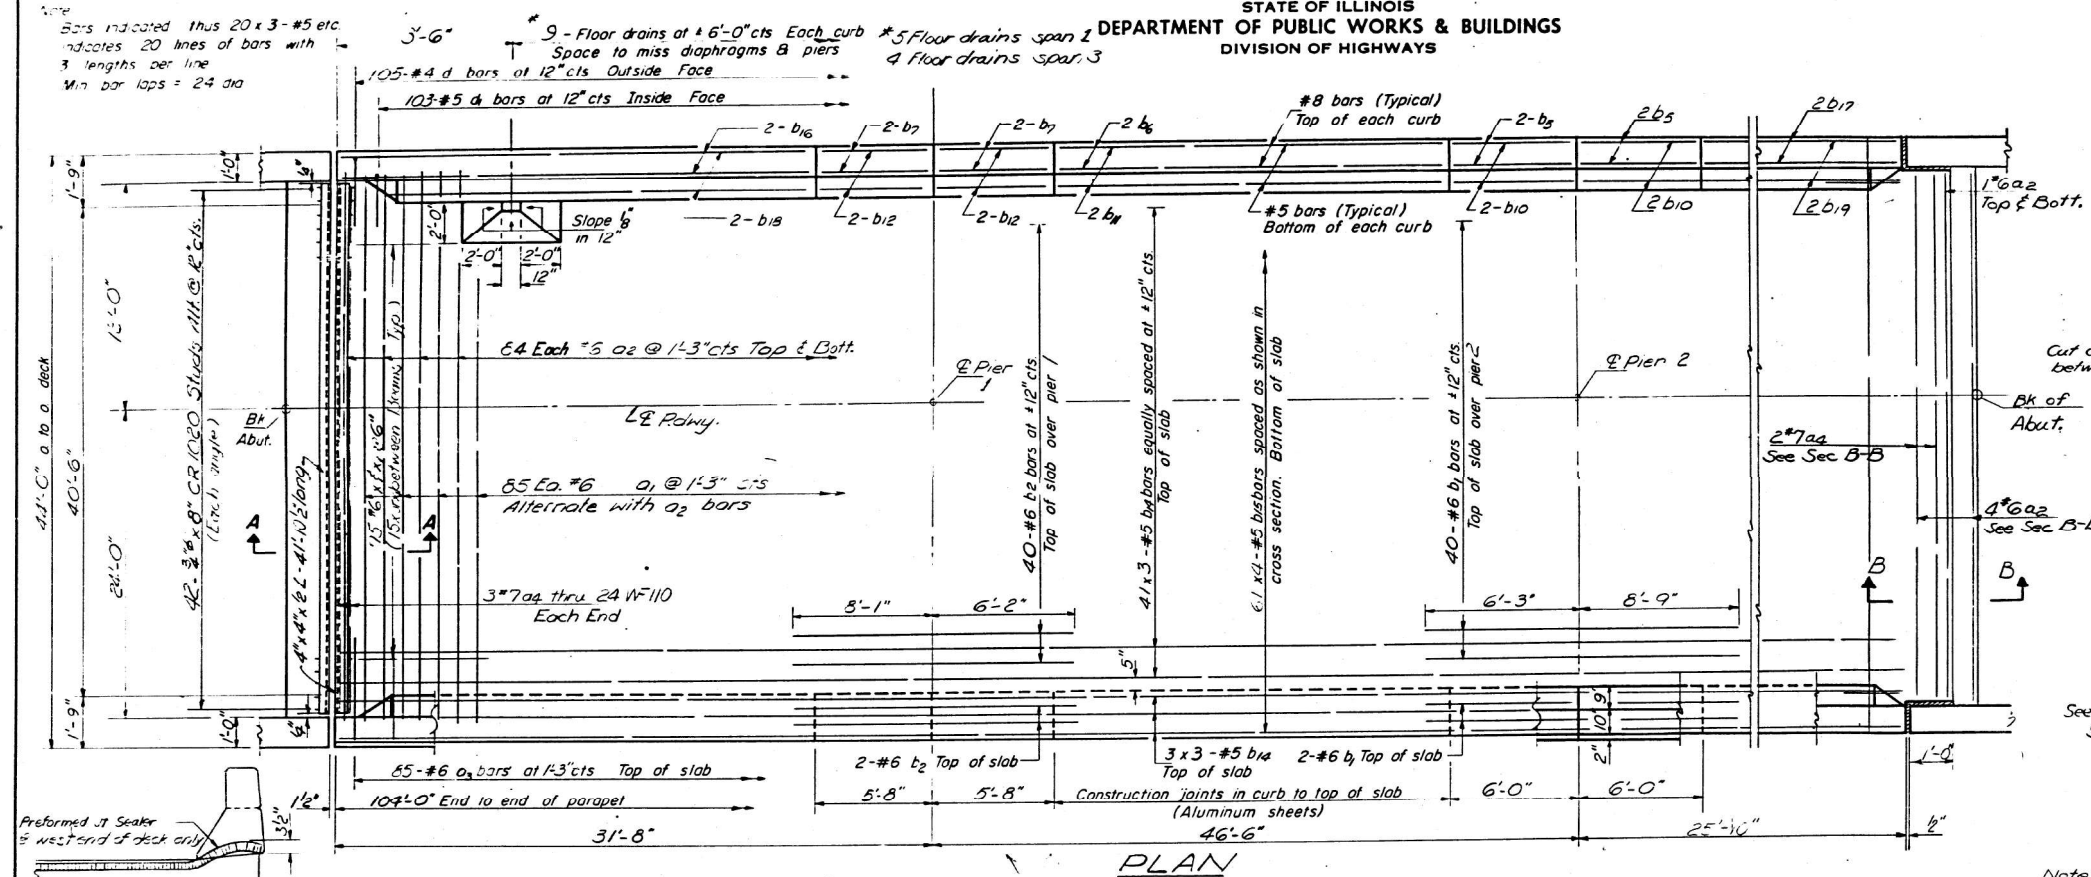 STATE OF ILLINOIS
DEPARTMENT OF PUBLIC WORKS & BUILDINGS
DIVISION OF HIGHWAYS
Note
Bars indicated thus 20 x 3 - #5 etc.
indicates 20 lines of bars with
3 lengths per line
Min bar laps = 24 dia
3'-6"
* 9 - Floor drains at ± 6'-0" cts Each curb
Space to miss diaphragms & piers
*5 Floor drains span 1
4 Floor drains span 3
105-#4 d bars at 12" cts Outside Face
103-#5 d1 bars at 12" cts Inside Face
#8 bars (Typical)
Top of each curb
2-b16
2-b7
2-b7
2 b6
2-b5
2b5
2b17
2-b18
2-b12
2-b12
2 b11
#5 bars (Typical)
Bottom of each curb
2-b10
2b10
2b19
1#6a2
Top & Bott.
1'-0"
1'-9"
Slope 1/8"
in 12"
2'-0"
2'-0"
2'-0"
12"
44'-0" o to o deck
40'-6"
24'-0"
42-3/4"ø x 8" CR 1020 Studs Alt. @ 12" cts.
(Each angle)
Bk
Abut.
4" x 4" x
41'-10½ long
64 Each #6 a2 @ 1'-3" cts Top & Bott.
℄ Rdwy.
85 Ea. #6 a1 @ 1'-3" cts
Alternate with a2 bars
3#7a4 thru 24 WF110
Each End
A
A
℄ Pier
1
40-#6 b2 bars at ±12" cts.
Top of slab over pier 1
41 x 3-#5 b14 bars equally spaced at ±12" cts.
Top of slab
61 x 4-#5 b15 bars spaced as shown in
cross section. Bottom of slab
40-#6 b1 bars at ±12" cts.
Top of slab over pier 2
℄ Pier 2
Bk of
Abut.
2#7a4
See Sec B-B
4#6a2
See Sec B-
B
B
8'-1"
6'-2"
6'-3"
8'-9"
5"
9"
10"
2"
1'-9"
1'-0"
85-#6 a3 bars at 1'-3" cts Top of slab
2-#6 b2 Top of slab
3 x 3-#5 b14
Top of slab
2-#6 b1 Top of slab
1½"
104'-0" End to end of parapet
5'-8"
5'-8"
Construction joints in curb to top of slab
(Aluminum sheets)
6'-0"
6'-0"
1'-0"
Preformed Jt Sealer
@ west end of deck only
3½"
31'-8"
46'-6"
25'-10"
½"
PLAN
Cut
betw
See
Note